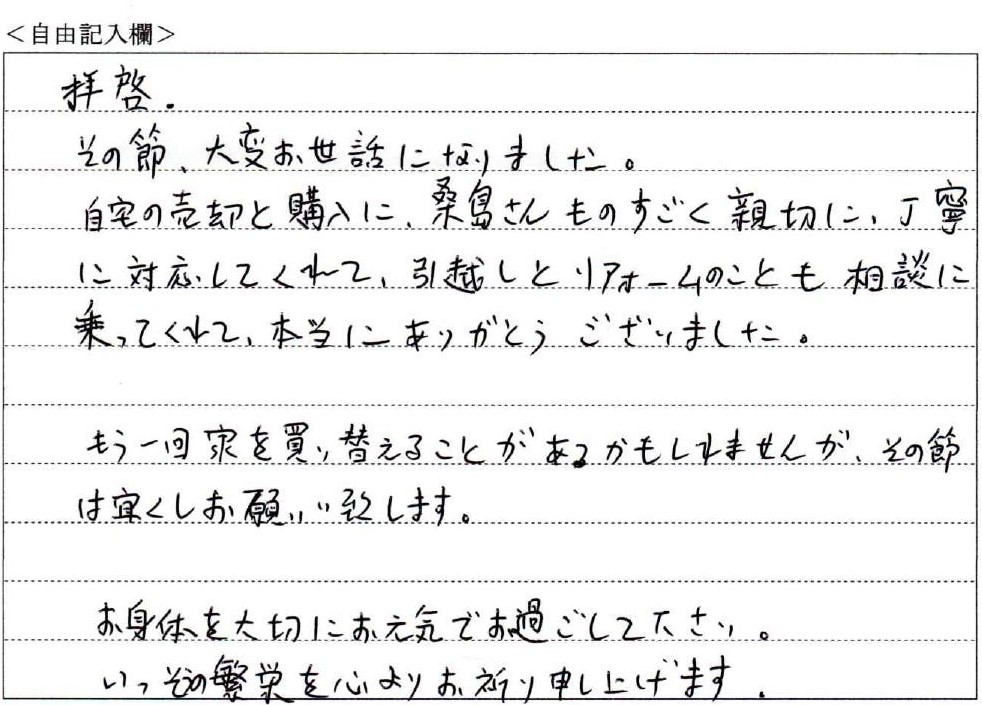 ＜自由記入欄＞
拝啓.
その節、大変お世話になりました。
自宅の売却と購入に、桑島さんものすごく親切に、丁寧
に対応してくれて、引越しとリフォームのことも相談に
乗ってくれて、本当にありがとうございました。
もう一回家を買い替えることがあるかもしれませんが、その節
は宜くしお願いい致します。
お身体を大切にお元気でお過ごして下さい。
いっその繁栄を心よりお祈り申し上げます.